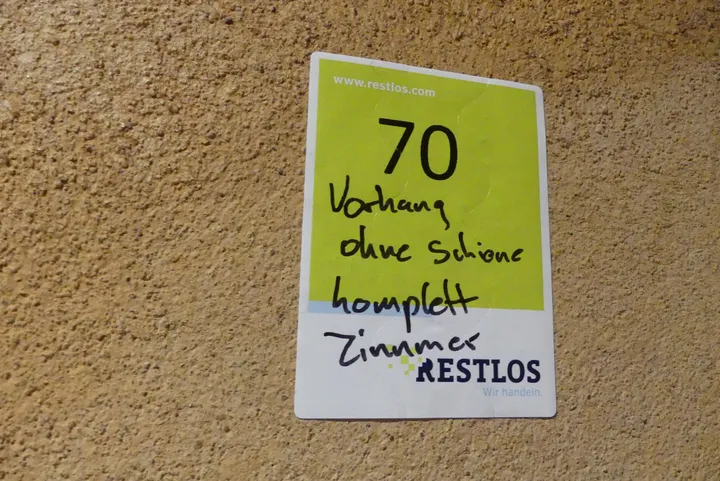 www.restlos.com
70
Vorhang
ohne Schiene
komplett
Zimmer
RESTLOS
Wir handeln.